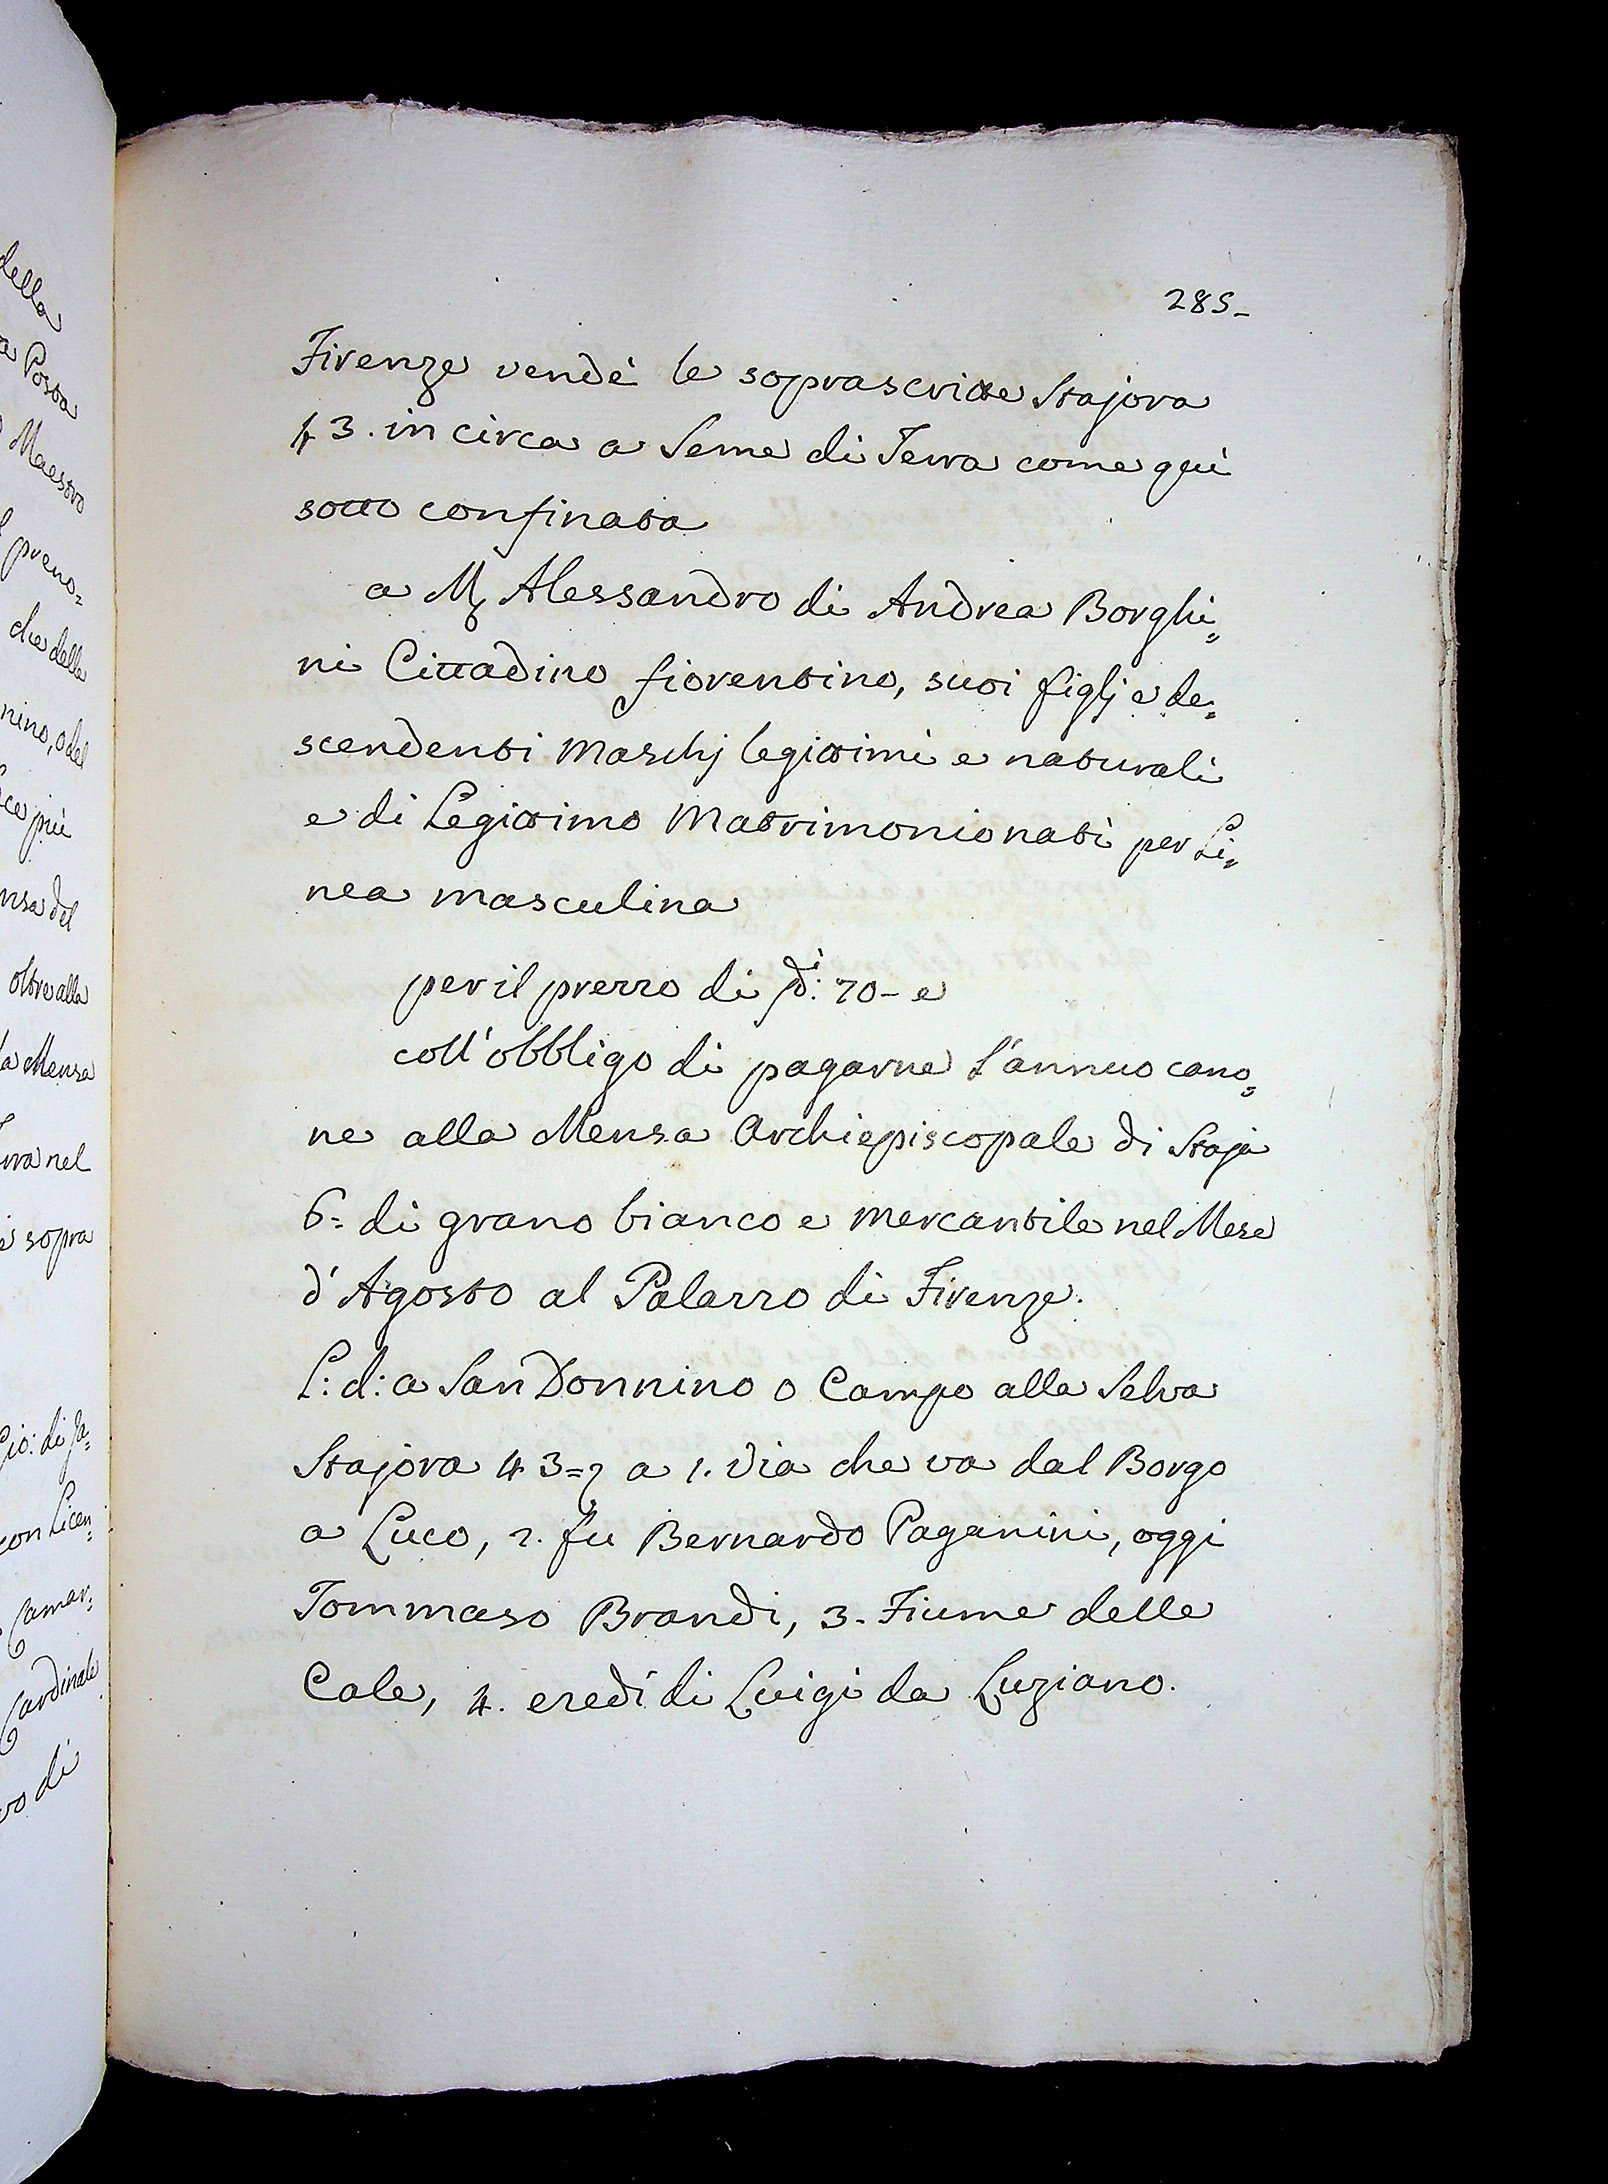 della
a Posta
Maestro
preno=
che della
nino, o del
ce più
nsa del
oltre alla
la Mensa
rra nel
è sopra
Gio: di Ja=
con Licen=
Camar=
Cardinale
vo di
285_
Firenze vendè le soprascritte Stajora
43. in circa a Seme di Terra come quì
sotto confinata
a M. Alessandro di Andrea Borghi=
ni Cittadino fiorentino, suoi figlj e de=
scendenti Maschj legittimi e naturali
e di Legittimo Matrimonio nati per Li=
nea masculina
per il prezzo di 70- e
coll'obbligo di pagarne l'annuo cano=
ne alla Mensa Archiepiscopale di Staja
6= di grano bianco e mercantile nel Mese
d'Agosto al Palazzo di Firenze.
L: d: a San Donnino o Campo alla Selva
Stajora 43= a 1. Via che va dal Borgo
a Luco, 2. fu Bernardo Paganini, oggi
Tommaso Brandi, 3. Fiume delle
Cale, 4. eredi di Luigi da Luziano.